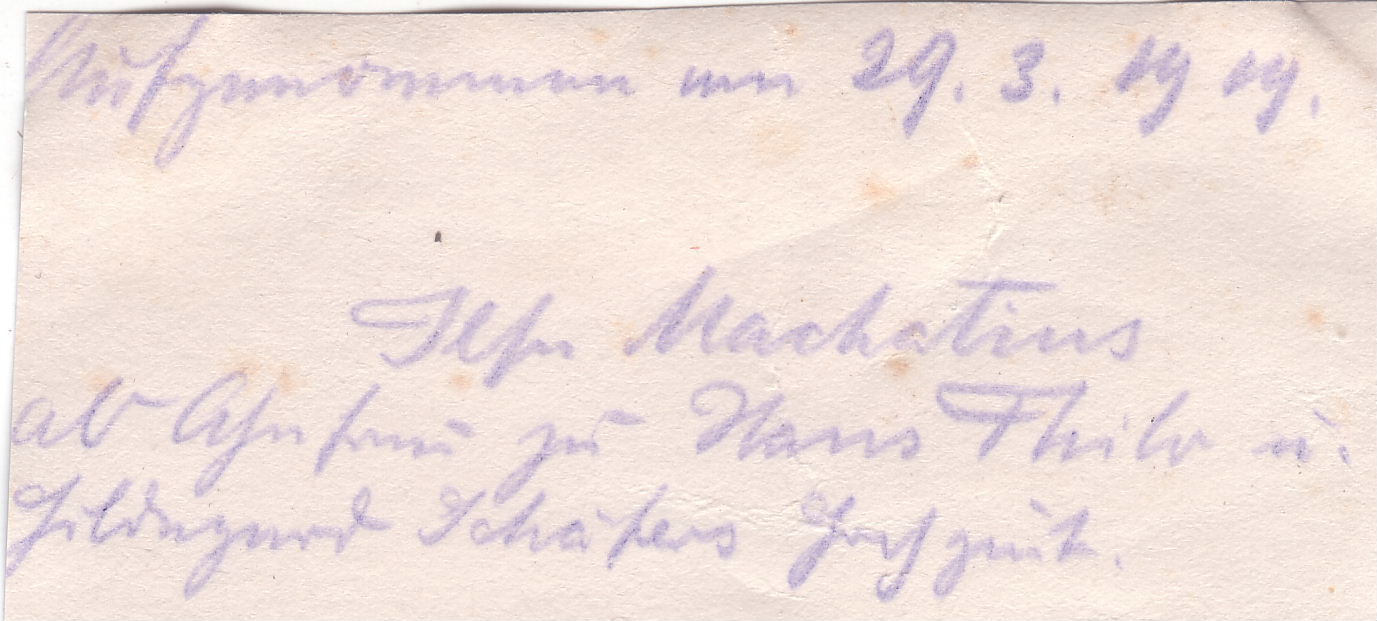 Aufgenommen am 29. 3. 1919.
Ilse Machatius
als Ehefrau zu Hans Thilo u.
Hildegard Schäfers Hochzeit.